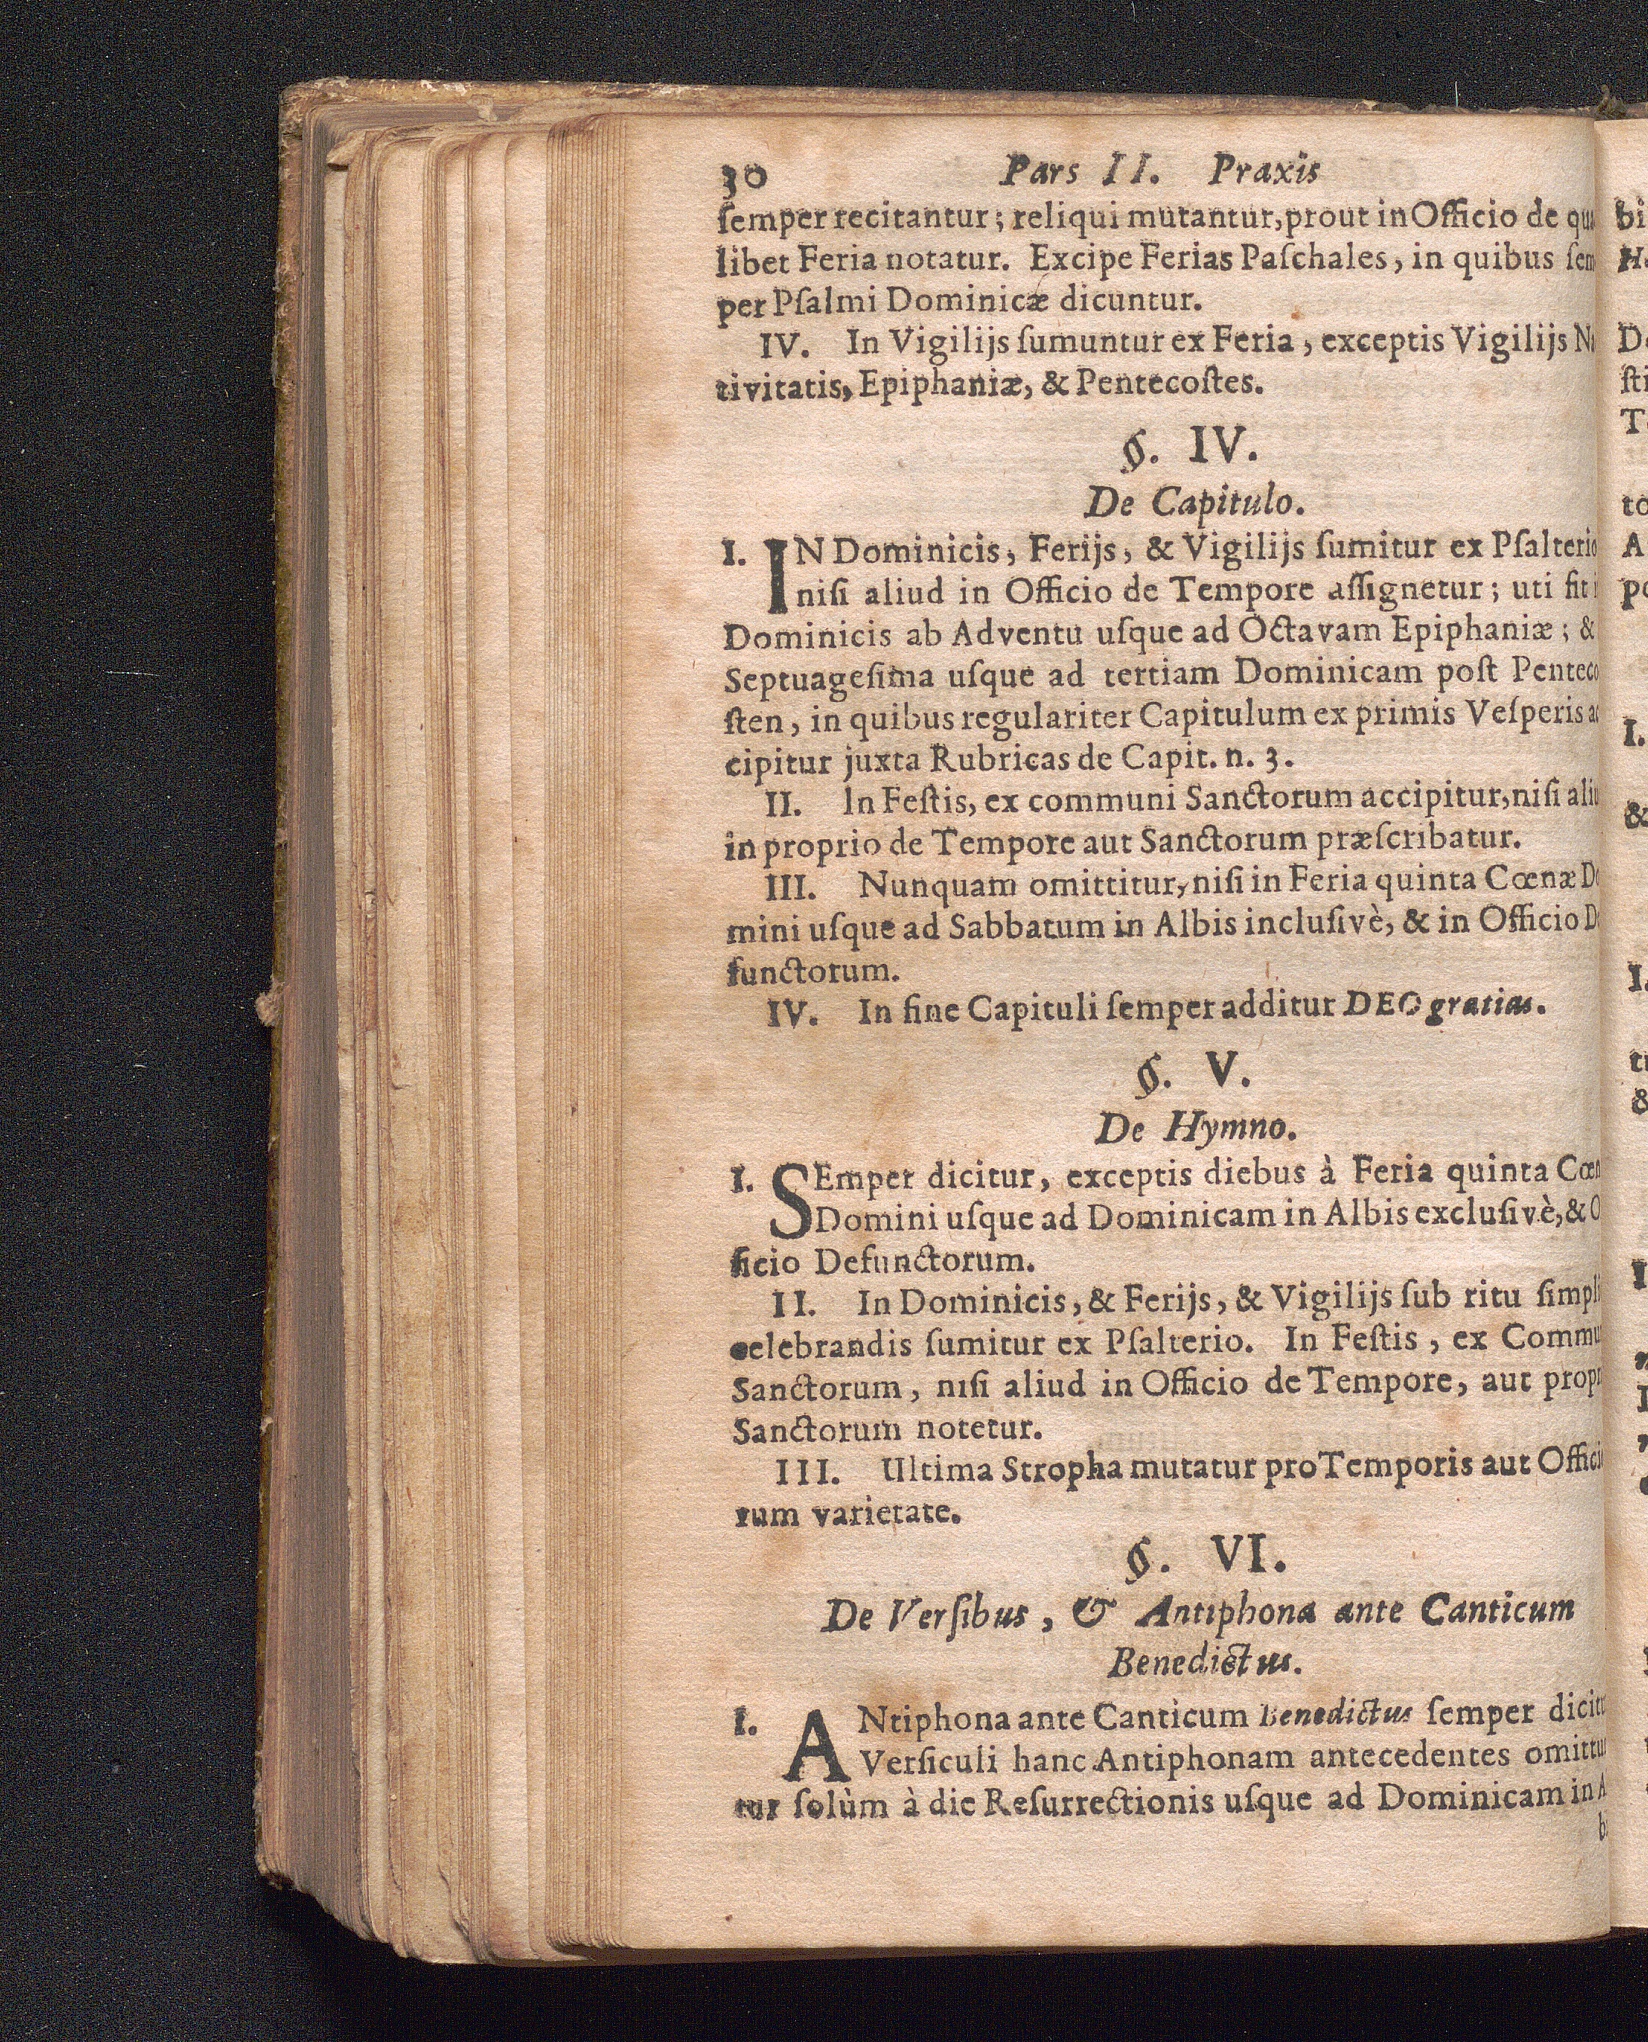 30 Pars II. Praxis
ſemper recitantur; reliqui mutantur, prout in Officio de qua
libet Feria notatur. Excipe Ferias Paſchales, in quibus ſem
per Pſalmi Dominicæ dicuntur.
IV. In Vigilijs ſumuntur ex Feria, exceptis Vigilijs Na
tivitatis, Epiphaniæ, & Pentecoſtes.
§. IV.
De Capitulo.
I. IN Dominicis, Ferijs, & Vigilijs ſumitur ex Pſalterio
niſi aliud in Officio de Tempore aſſignetur; uti fit i
Dominicis ab Adventu uſque ad Octavam Epiphaniæ; &
Septuageſima uſque ad tertiam Dominicam poſt Penteco
ſten, in quibus regulariter Capitulum ex primis Veſperis ac
cipitur juxta Rubricas de Capit. n. 3.
II. In Feſtis, ex communi Sanctorum accipitur, niſi aliu
in proprio de Tempore aut Sanctorum præſcribatur.
III. Nunquam omittitur, niſi in Feria quinta Cœnæ Do
mini uſque ad Sabbatum in Albis incluſivè, & in Officio De
functorum.
IV. In fine Capituli ſemper additur DEO gratias.
§. V.
De Hymno.
I. SEmper dicitur, exceptis diebus à Feria quinta Cœn
Domini uſque ad Dominicam in Albis excluſivè, & O
ficio Defunctorum.
II. In Dominicis, & Ferijs, & Vigilijs ſub ritu ſimpli
celebrandis ſumitur ex Pſalterio. In Feſtis, ex Commu
Sanctorum, niſi aliud in Officio de Tempore, aut propr
Sanctorum notetur.
III. Ultima Stropha mutatur pro Temporis aut Offici
rum varietate.
§. VI.
De Verſibus, & Antiphona ante Canticum
Benedictus.
I. ANtiphona ante Canticum Benedictus ſemper dicitu
Verſiculi hanc Antiphonam antecedentes omittu
tur ſolùm à die Reſurrectionis uſque ad Dominicam in A
b